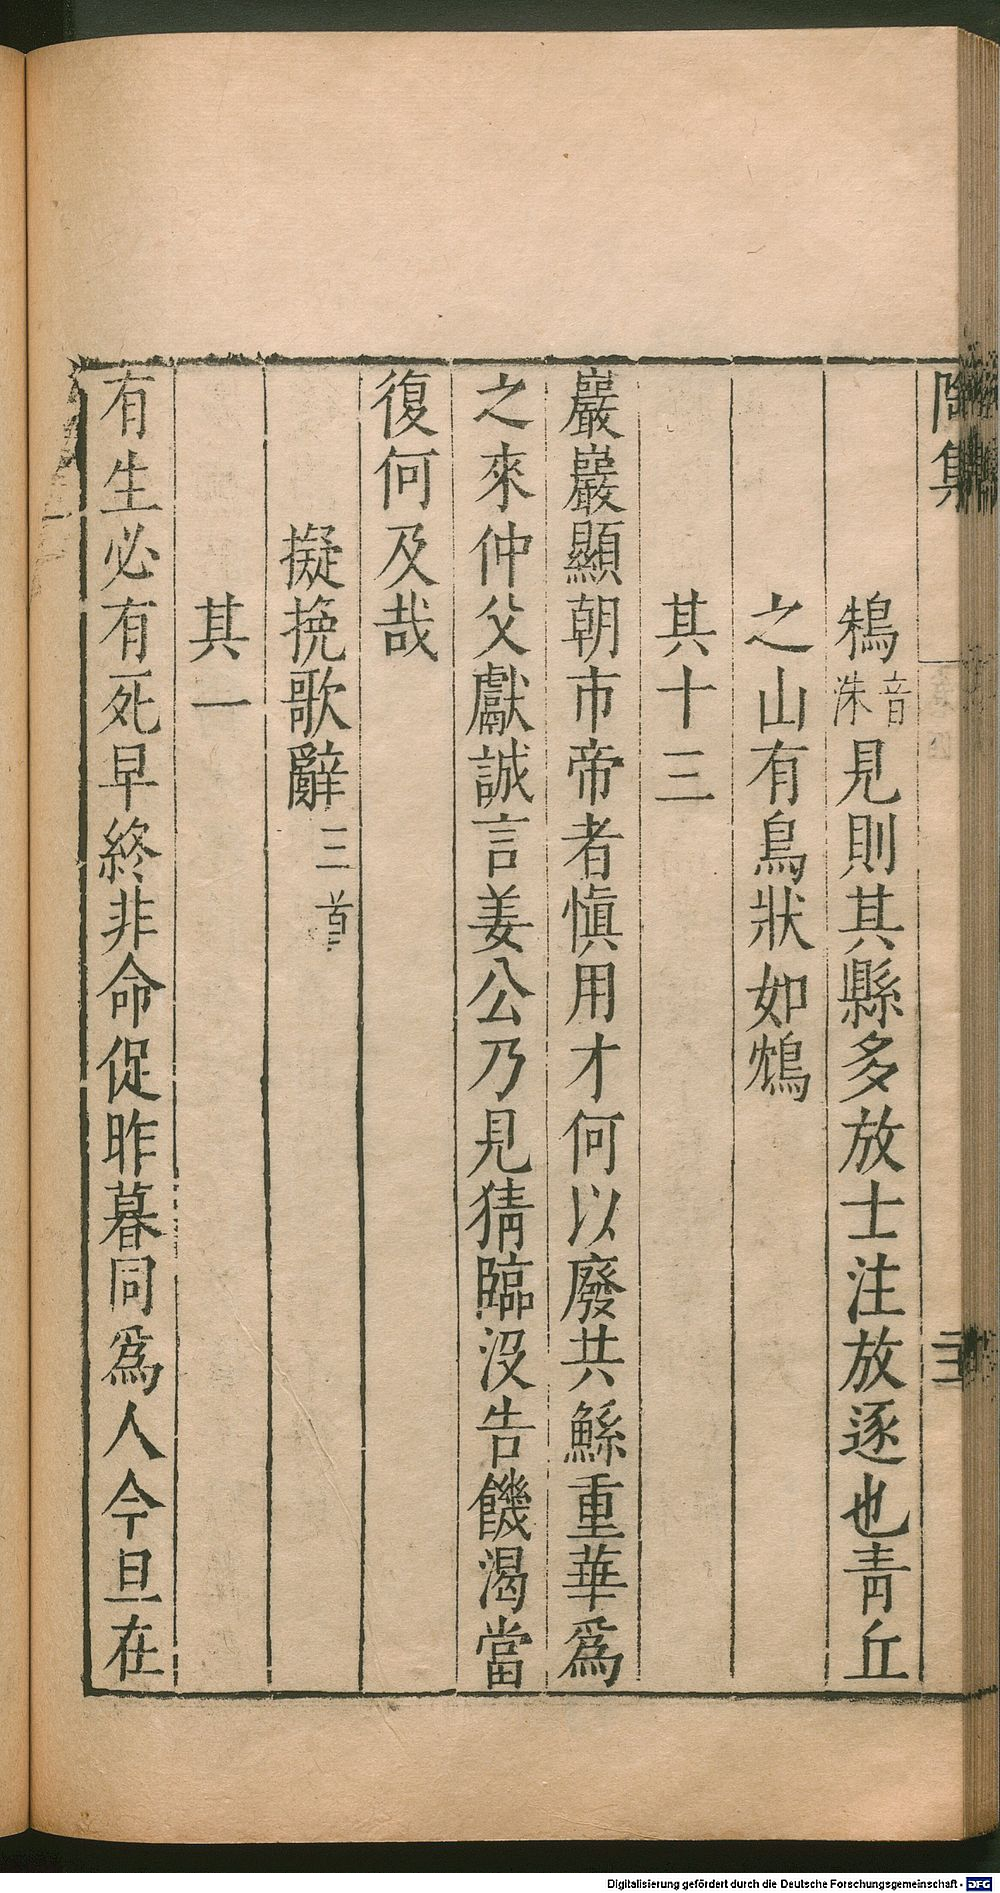 集
鴸音洙見則其縣多放士注放逐也青丘
之山有鳥狀如鴆
其十三
巖巖顯朝市帝者慎用才何以廢共鯀重華爲
之來仲父獻誠言姜公乃見猜臨没告饑渴當
復何及哉
擬挽歌辭三首
其一
有生必有死早終非命促昨暮同爲人今旦在
Digitalisierung gefördert durch die Deutsche Forschungsgemeinschaft - DFG